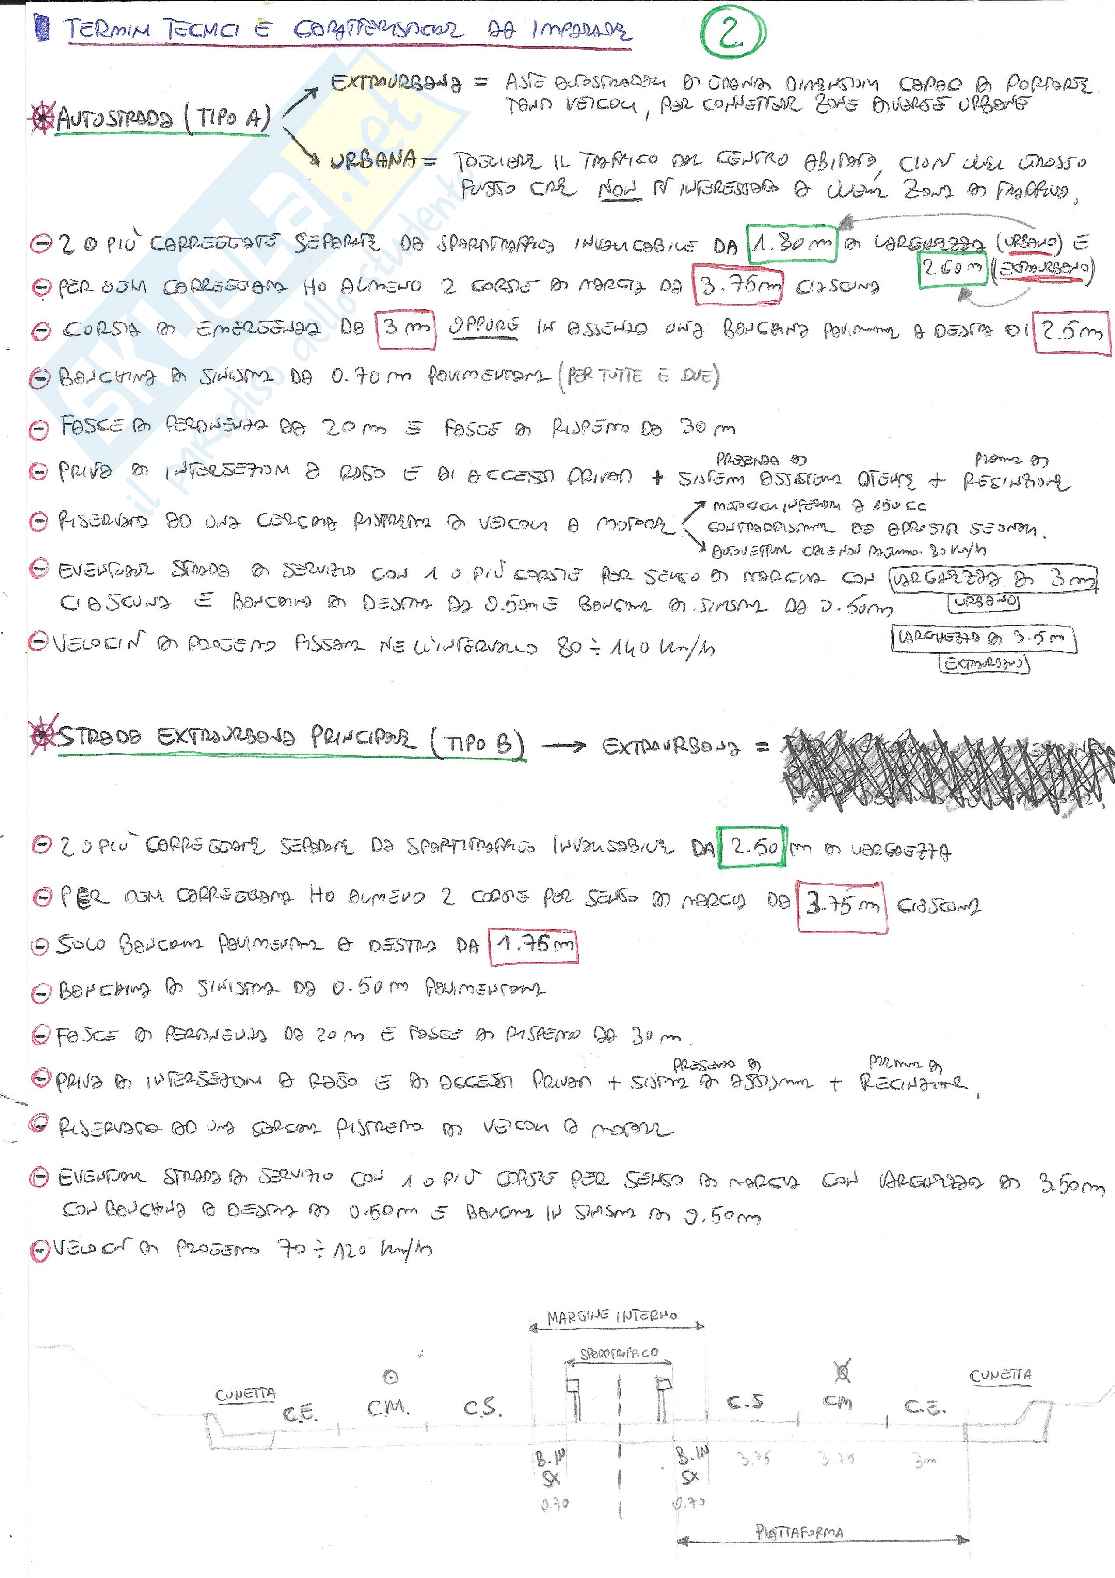 TERMINI TECNICI E CARATTERISTICHE DA IMPARARE
2
AUTOSTRADA (TIPO A)
EXTRAURBANA = ASTE AUTOSTRADALI DI GRANDI DIMENSIONI CAPACI DI PORTARE
TANTI VEICOLI, PER CONNETTERE ZONE DIVERSE URBANE
URBANA = TOGLIERE IL TRAFFICO DAL CENTRO ABITATO, CON QUEL GROSSO
FLUSSO CHE NON È INTERESSATO A QUELLA ZONA DI TRAFFICO.
2 O PIÙ CARREGGIATE SEPARATE DA SPARTITRAFFICO INVALICABILE DA 1.80 m DI LARGHEZZA (URBANO) E
2.60 m (EXTRAURBANO)
PER OGNI CARREGGIATA HO ALMENO 2 CORSIE DI MARCIA DA 3.75 m CIASCUNA
CORSIA DI EMERGENZA DA 3 m OPPURE IN ASSENZA UNA BANCHINA PAVIMENTATA A DESTRA DI 2.5 m
BANCHINA DI SINISTRA DA 0.70 m PAVIMENTATA (PER TUTTE E DUE)
FASCE DI PERTINENZA DA 20 m E FASCE DI RISPETTO DA 30 m
PRIVA DI INTERSEZIONI A RASO E DI ACCESSI PRIVATI + PRESENZA DI SISTEMI ASSISTENZA UTENTE + RECINZIONE
RISERVATO AD UNA CERCHIA RISTRETTA DI VEICOLI A MOTORE
MOTOCICLI INFERIORI A 150 CC
CONTRADDISTINTA DA APPOSITI SEGNALI.
AUTOVETTURE CHE NON RAGGIUNG. 80 km/h
EVENTUALE STRADA DI SERVIZIO CON 1 O PIÙ CORSIE PER SENSO DI MARCIA CON LARGHEZZA DI 3 m
CIASCUNA E BANCHINA DI DESTRA DA 0.50 m E BANCHINA DI SINISTRA DA 0.50 m
URBANO
LARGHEZZA DI 3.5 m
EXTRAURBANO
VELOCITÀ DI PROGETTO FISSATA NELL'INTERVALLO 80 ÷ 140 km/h
STRADA EXTRAURBANA PRINCIPALE (TIPO B) → EXTRAURBANA =
2 O PIÙ CARREGGIATE SEPARATE DA SPARTITRAFFICO INVALICABILE DA 2.50 m DI LARGHEZZA
PER OGNI CARREGGIATA HO ALMENO 2 CORSIE PER SENSO DI MARCIA DA 3.75 m CIASCUNA
SOLO BANCHINA PAVIMENTATA A DESTRA DA 1.75 m
BANCHINA DI SINISTRA DA 0.50 m PAVIMENTATA
FASCE DI PERTINENZA DA 20 m E FASCE DI RISPETTO DA 30 m.
PRIVA DI INTERSEZIONI A RASO E DI ACCESSI PRIVATI + PRESENZA DI SISTEMI DI ASSISTENZA + RECINZIONE.
RISERVATO AD UNA CERCHIA RISTRETTA DI VEICOLI A MOTORE
EVENTUALE STRADA DI SERVIZIO CON 1 O PIÙ CORSIE PER SENSO DI MARCIA CON LARGHEZZA DI 3.50 m
CON BANCHINA A DESTRA DI 0.50 m E BANCHINA IN SINISTRA DI 0.50 m
VELOCITÀ DI PROGETTO 70 ÷ 120 km/h
MARGINE INTERNO
SPARTITRAFFICO
CUNETTA C.E. C.M. C.S. C.S CM C.E. CUNETTA
B. IN SX 0.70
B. IN SX 0.70
3.75 3.75 3m
PIATTAFORMA
SKUOLA.net
il paradiso dello studente